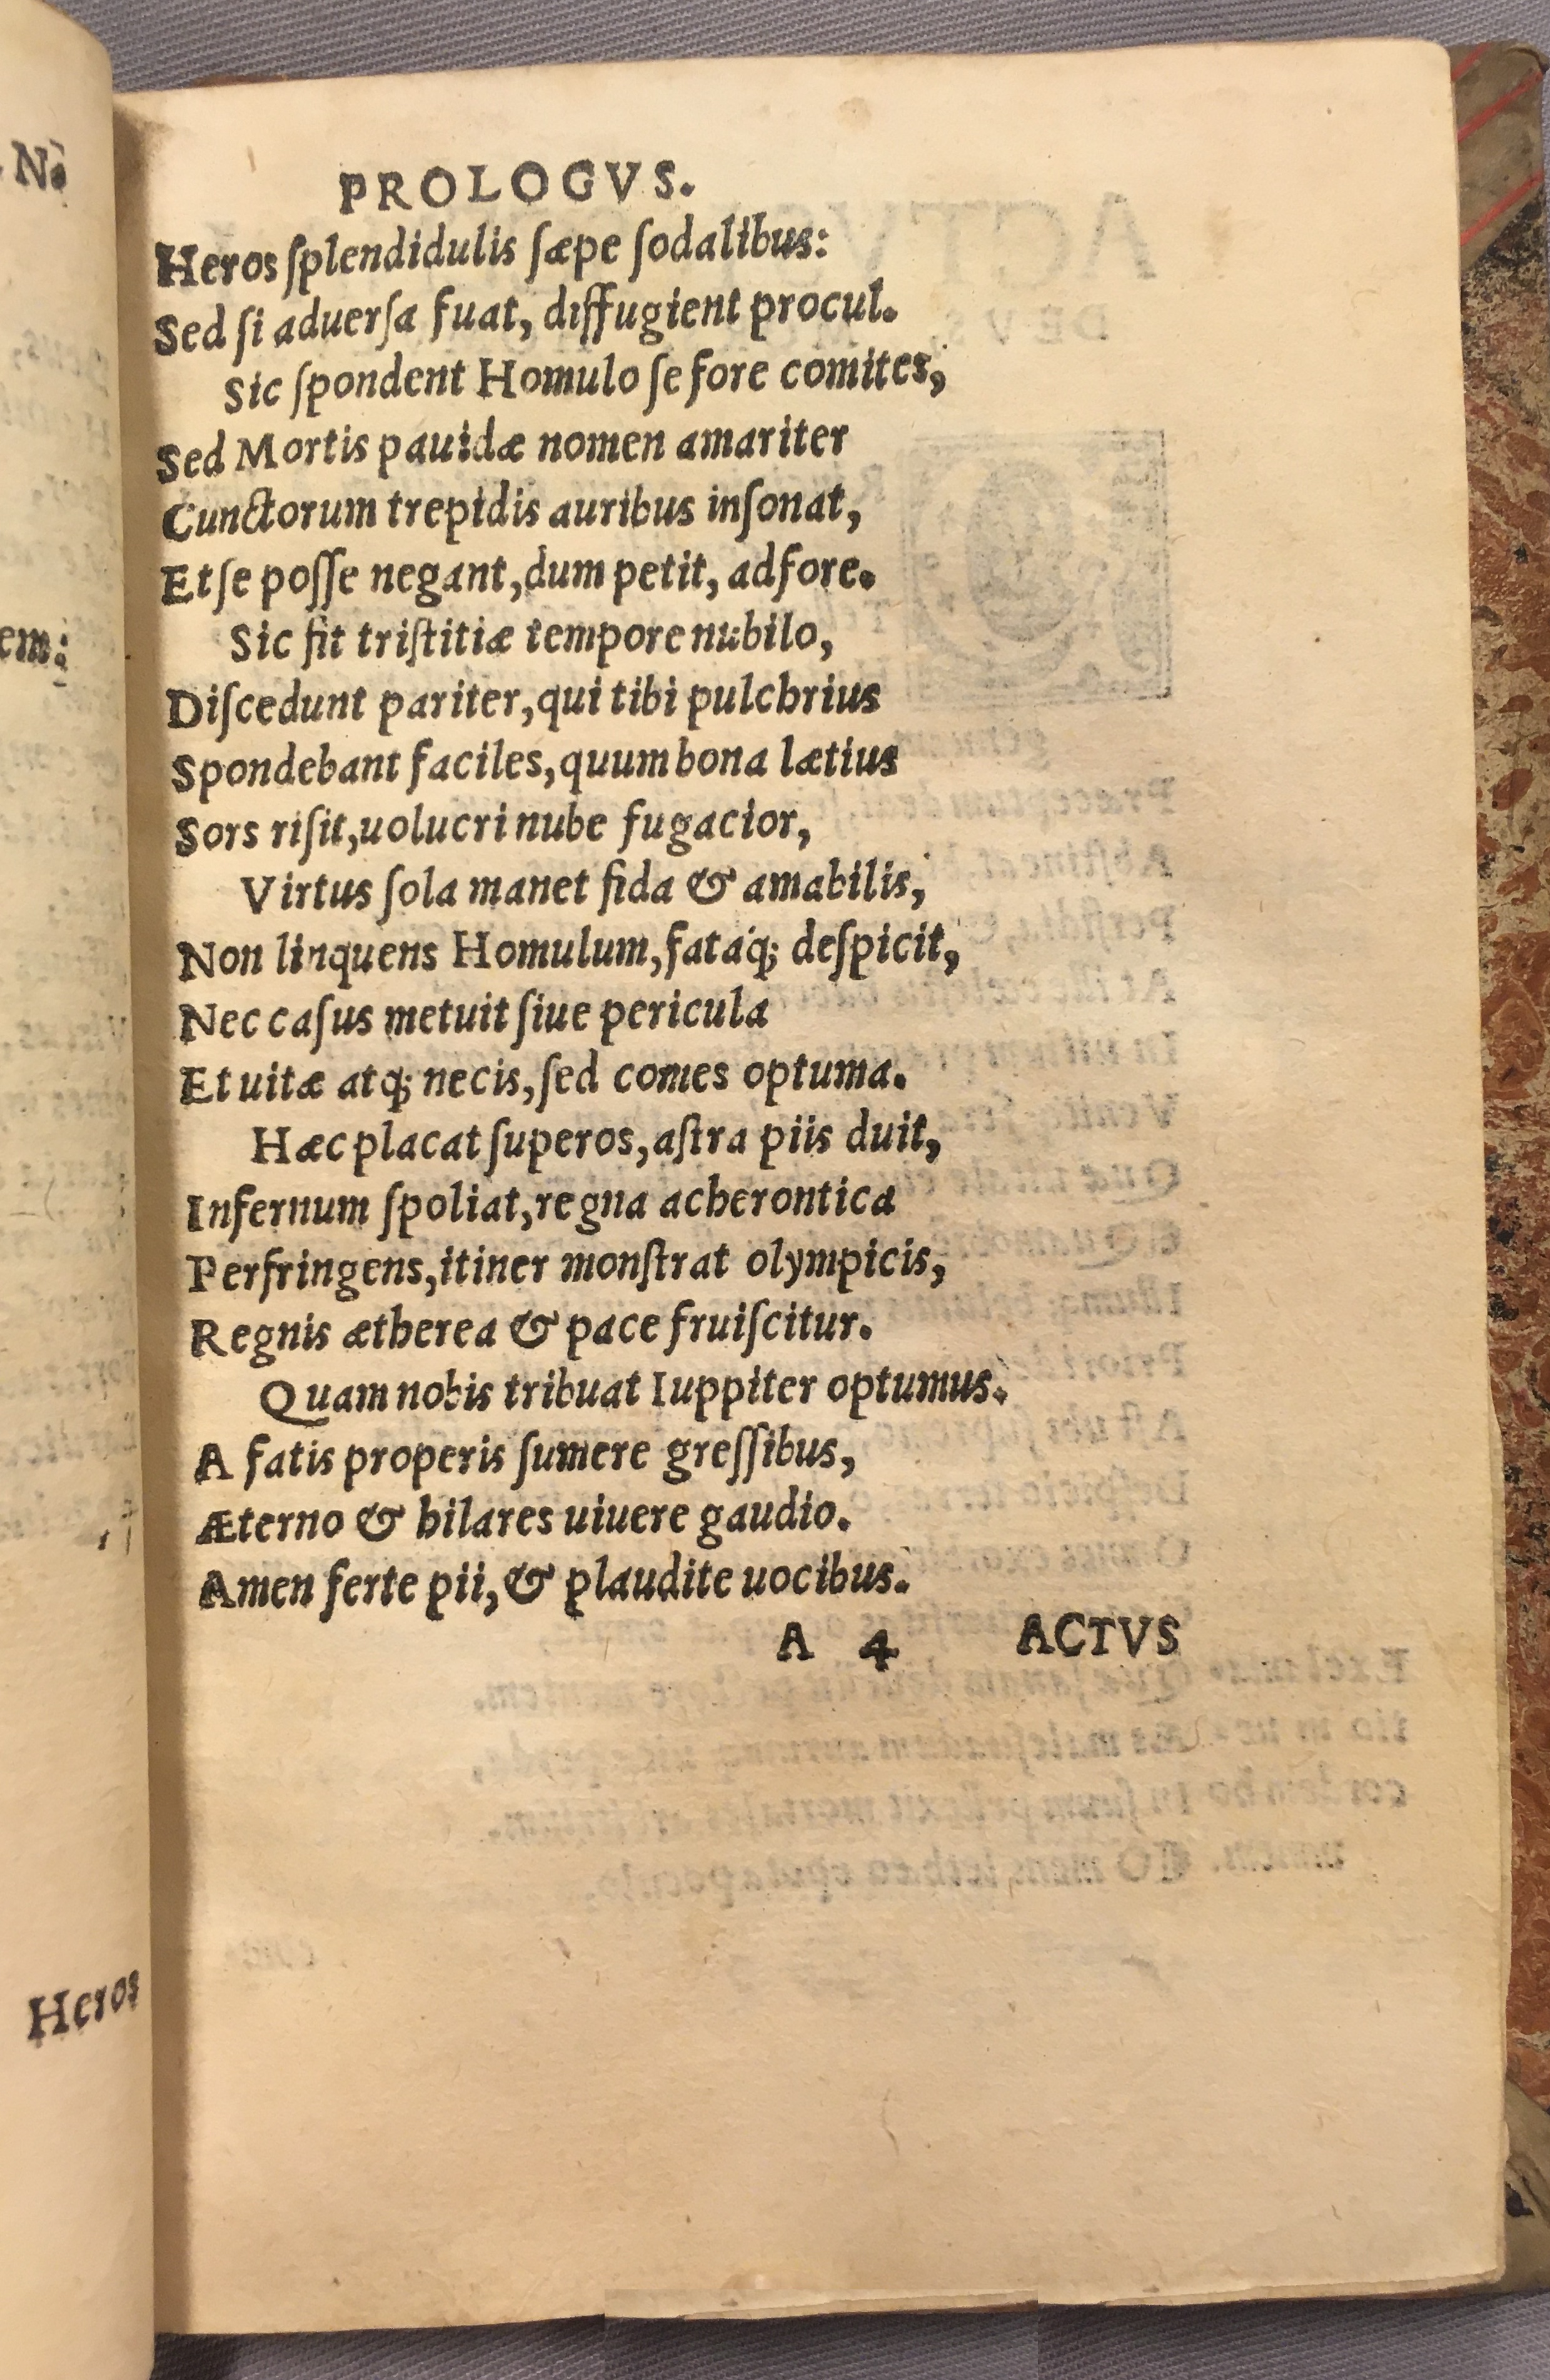 N.
em:
Heros
PROLOGVS.
Heros ſplendidulis ſæpe ſodalibus:
Sed ſi aduerſa fuat, diffugient procul.
Sic ſpondent Homulo ſe fore comites,
Sed Mortis pauidæ nomen amariter
Cunctorum trepidis auribus inſonat,
Et ſe poſſe negant, dum petit, adfore.
Sic fit triſtitiæ tempore nubilo,
Diſcedunt pariter, qui tibi pulchrius
Spondebant faciles, quum bona lætius
Sors riſit, uolucri nube fugacior,
Virtus ſola manet fida & amabilis,
Non linquens Homulum, fataq́; deſpicit,
Nec caſus metuit ſiue pericula
Et uitæ atq; necis, ſed comes optuma.
Hæc placat ſuperos, aſtra piis duit,
Infernum ſpoliat, regna acherontica
Perfringens, itiner monſtrat olympicis,
Regnis ætherea & pace fruiſcitur.
Quam nobis tribuat Iuppiter optumus.
A fatis properis ſumere greſſibus,
Æterno & hilares uiuere gaudio.
Amen ferte pii, & plaudite uocibus.
A 4 ACTVS